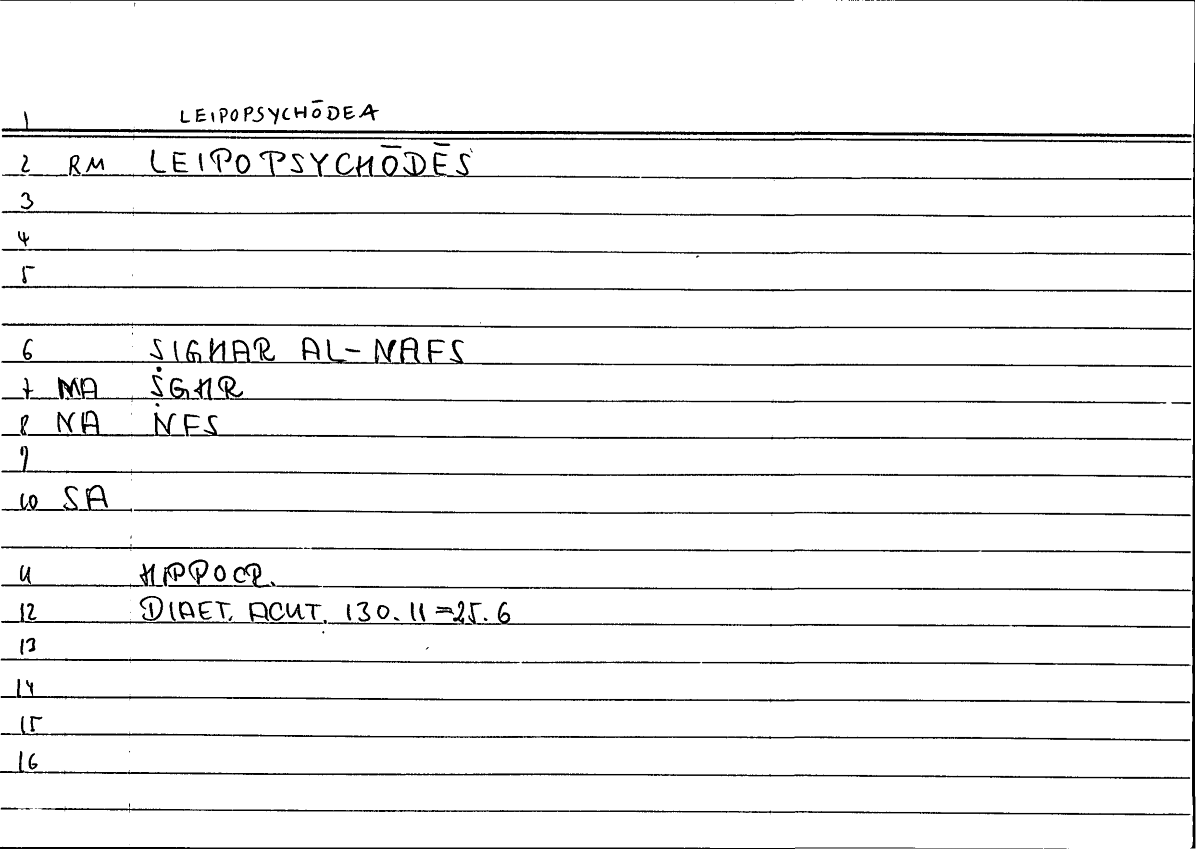 1 LEIPOPSYCHŌDEA
2 RM LEIPOPSYCHŌDĒS
3
4
5
6 ṢIGHAR AL-NAFS
7 MA ṢGHR
8 NA NFS
9
10 SA
11 HIPPOCR.
12 DIAET. ACUT. 130.11=25.6
13
14
15
16